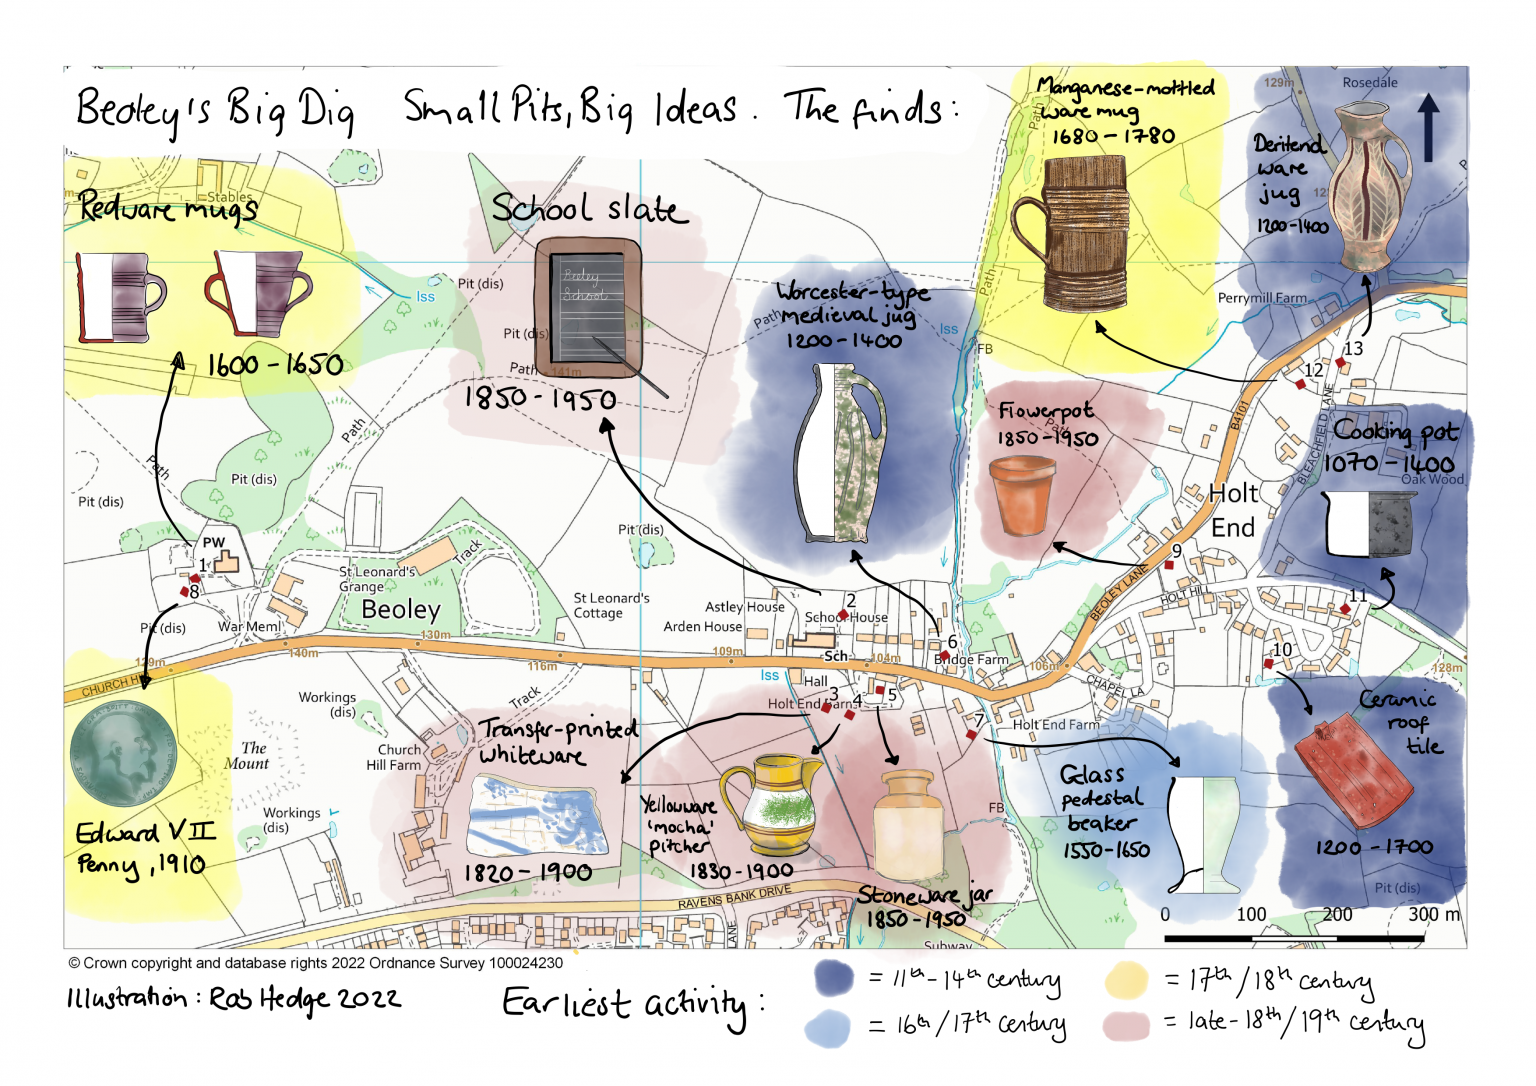 Beoley's Big Dig Small Pits, Big Ideas. The finds:
Manganese-mottled
ware mug
1680 - 1780
129m
Rosedale
Deritend
ware
jug
1200-1400
Path
Stables
Redware mugs
1600 - 1650
School slate
Beoley
School
1850 - 1950
Pit (dis)
Pit (dis)
Path
141m
Iss
Worcester-type
medieval jug
1200 - 1400
Path
Iss
Path
FB
Perrymill Farm
13
12
B4101
BLEACHFIELD LANE
Flowerpot
1850-1950
Path
Cooking pot
1070-1400
Oak Wood
Holt
End
Path
Path
Pit (dis)
Pit (dis)
Pit (dis)
PW
1
8
Pit (dis)
War Meml
St Leonard's
Grange
Beoley
Track
St Leonard's
Cottage
Astley House
Arden House
School House
2
Sch
6
Bridge Farm
9
BEOLEY LANE
HOLT HILL
11
10
129m
CHURCH H
140m
130m
116m
109m
104m
106m
128m
Iss
Hall
Holt End Barns
3
4
5
7
Holt End Farm
CHAPEL LA
Workings
(dis)
Track
Church
Hill Farm
The
Mount
Workings
(dis)
Edward VII
Penny, 1910
Transfer-printed
whiteware
1820 - 1900
Yellowware
'mocha'
pitcher
1830 - 1900
Stoneware jar
1850 - 1950
RAVENS BANK DRIVE
LANE
Subway
FB
Glass
pedestal
beaker
1550-1650
Ceramic
roof
tile
1200 - 1700
Pit (dis)
0 100 200 300 m
© Crown copyright and database rights 2022 Ordnance Survey 100024230
Illustration: Rob Hedge 2022
Earliest activity:
= 11th-14th century
= 16th/17th century
= 17th/18th century
= late-18th/19th century